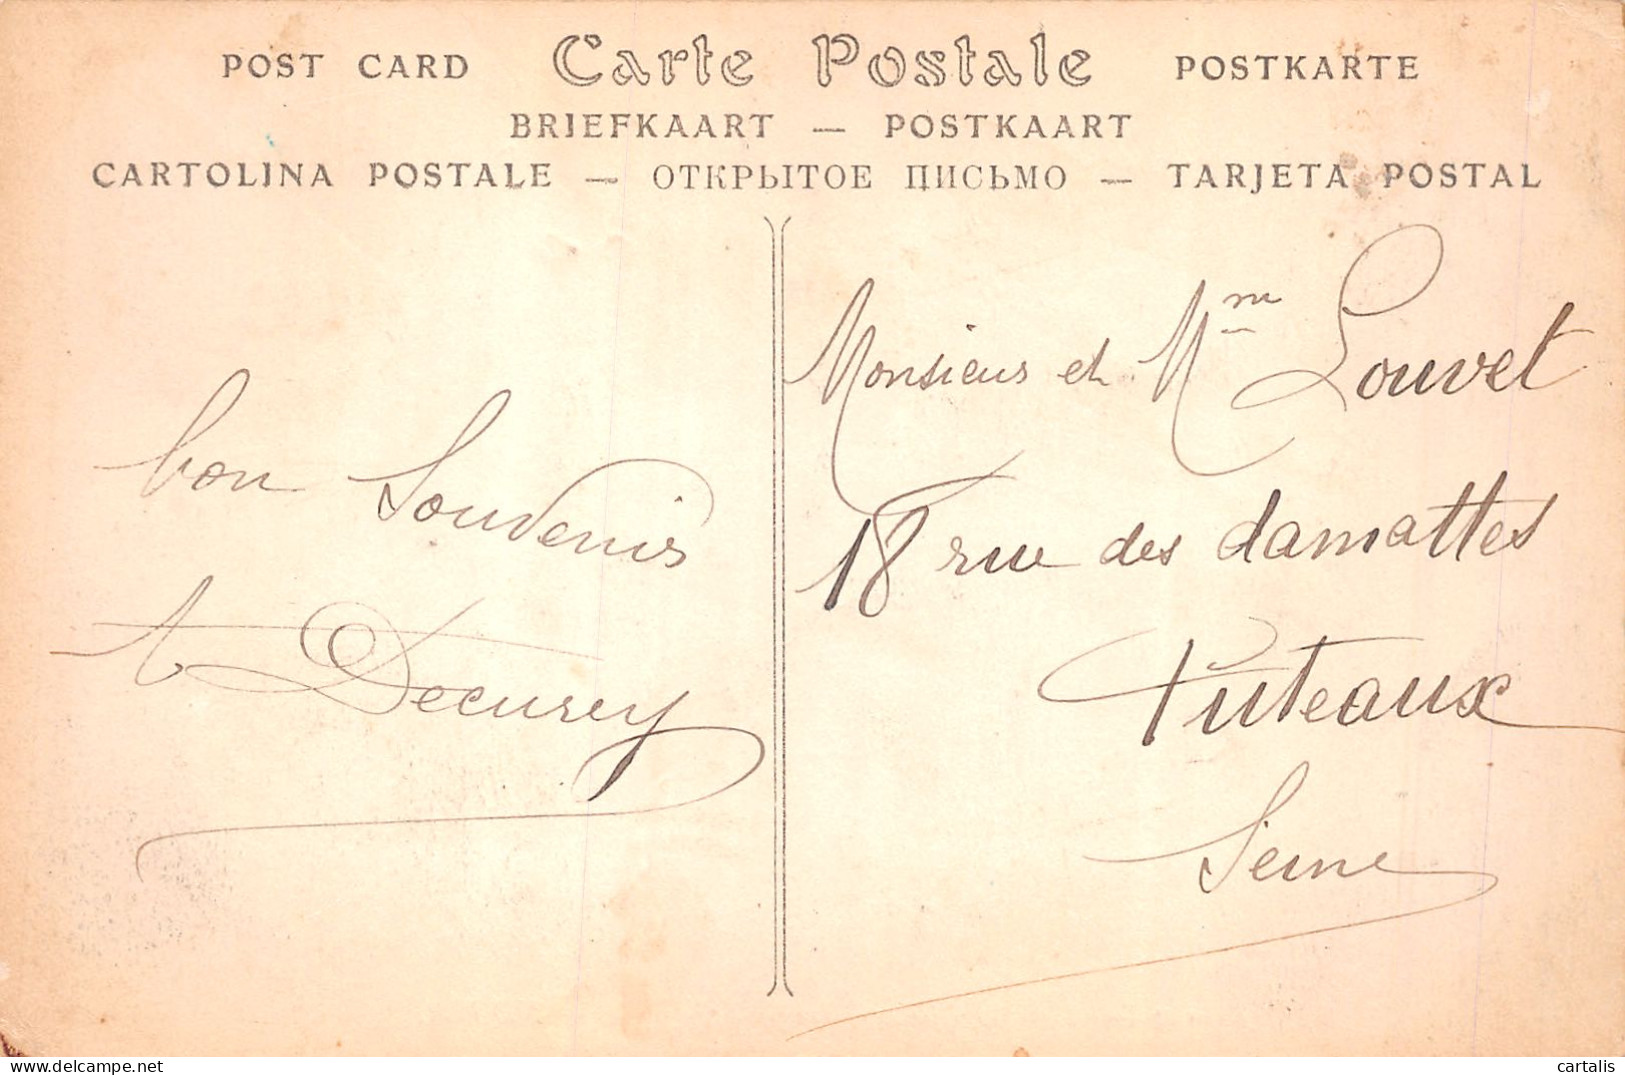 POST CARD Carte Postale POSTKARTE
BRIEFKAART — POSTKAART
CARTOLINA POSTALE — ОТКРЫТОЕ ПИСЬМО — TARJETA POSTAL
bon Souvenir
A Decurey
Monsieur et Mme Louvet
18 rue des damattes
Puteaux
Seine
delcampe.net
cartalis